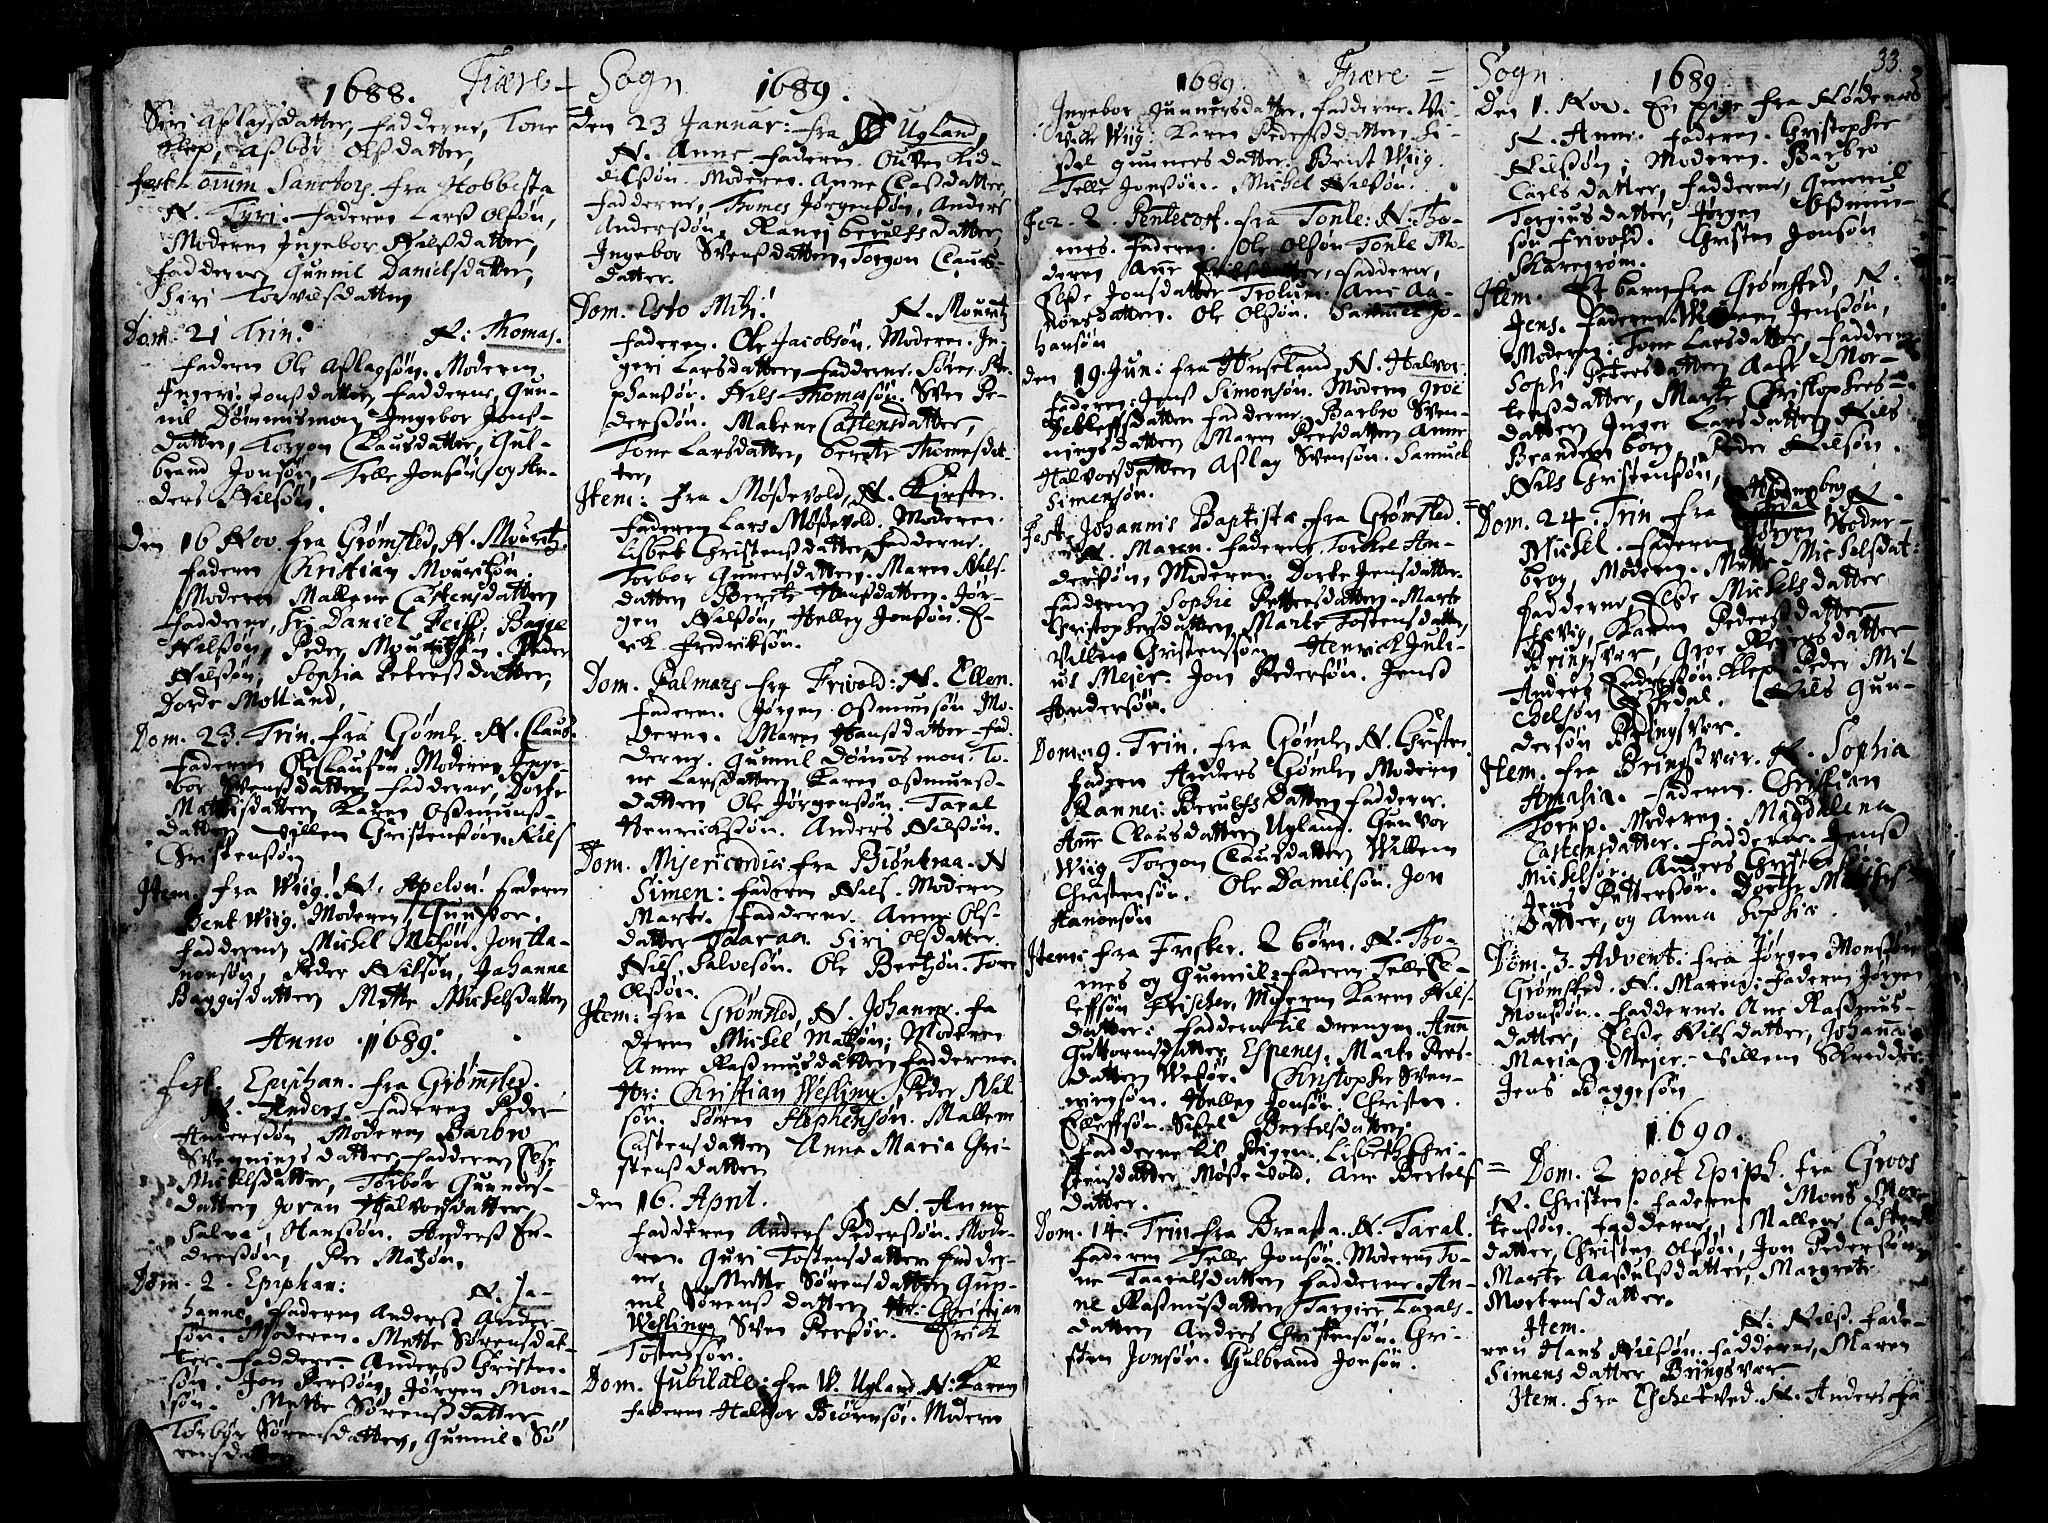 1688. Fiære Sogn 1689.
Siri Aslagsdatter, fadderne, Tone
Klep, Aßbør Olsdatter,
fest. omnium Sanctor. fra Hobbesta
N. Tyri. Faderen Larß Olsøn,
Moderen Ingebor Nilsdatter,
fadderne Gunnil Danielsdatter,
Siri Torvilsdatter
Dom. 21 Trin. N. Thomas.
faderen Ole Aslagsøn. Moderen
Ingeri Jonsdatter, fadderne, Gun-
nil Dømmismon, Ingebor Jens-
datter, Torgon Clausdatter, Gul-
brand Jonsøn, Telle Jonsøn og An-
ders Nilsøn.
Den 16 Nov. fra Grømsted, N. Mouritz
faderen Christian Mouritsøn.
Moderen Mallene Castensdatter
fadderne, Hr. Daniel Bagge
Nilsøn, Peder Mouritsøn. Peder
Nilsøn, Sophia Petersdatter,
Dorde Molland.
Dom. 23. Trin. fra Grømb. N. Claus.
Faderen Ole Clausøn. Moderen Inge-
bor Svensdatter, fadderne, Dorte
Mattisdatter Karen Oßmunß-
datter Villem Christensøn. Nils
Christensøn
Item. fra Wiig. N. Apelon. faderen
Bent Wiig. Moderen, Gunvor.
fadderne Michel Matsøn. Jon Ha-
nonsøn, Peder Nilsøn, Johanne
Baggisdatter Mette Michelsdatter
Anno 1689.
fest. Epiphan. fra Grømsted.
N. Anders. faderen Peder
Andersøn, Moderen Barbro
Svenningsdatter, fadderne Else
Michelsdatter, Torbør Gunners-
datter Joran Halvorsdatter,
Salve Hansøn. Anders En-
dresøn, Per Matsøn.
Dom. 2. Epiphan: N. Jo-
hanne, faderen Anderß Ander-
søn. Moderen. Mette Sørensdat-
ter. faddere. Anderß Christen-
søn. Jon Persøn, Jørgen Mon-
søn. Mette Sørensdatter
Torbør Sørensdatter, Gunnil Sø-
rensdatter
Den 23 Januar: fra Ø Ugland,
N. Anne. faderen. Ouven Kid-
dilsøn. Moderen. Anne Claßdatter,
fadderne, Thomes Jørgensøn, Anders
Anderssøn. Rannj berulfsdatter,
Ingebor Svensdatter, Torgon Claus-
datter.
Dom. Esto Mihi. N. Mouritz
faderen. Ole Jacobsøn. Moderen. In-
geri Larsdatter fadderne. Søren Ste-
phansøn. Nils Thomasøn. Sven Pe-
dersøn. Malene Castensdatter,
Tone Larsdatter, berete Thomesdat-
ter,
Item: fra Mößevold, N. Kirsten.
faderen Lars Mößevold. Moderen.
Lisbet Christensdatter, fadderne.
Torbor Gunnersdatter. Maren Nils-
datter Berete Hansdatter. Jør-
gen Nilsøn, Helleg Jonsøn. E-
rick Fredriksøn.
Dom. Palmars fra Frivold: N. Ellen.
faderen. Jørgen Oßmunsøn. Mo-
deren. Maren Hansdatter fad-
derne. Gunnil Dømmsmon. To-
ne Larsdatter Karen Oßmunß-
datter Ole Jørgensøn. Taral
Henrickssøn. Anders Nilsøn.
Dom. Misericordia fra Biøntraa. N
Simen: faderen Nils. Moderen
Marte. fadderne. Anne Ols-
datter Taaraa. Siri Olsdatter.
Nils Salvesøn. Ole Bertsøn. Tore
Olsøn.
Item: fra Grømsted, N. Johanne. fa
deren Michel Matsøn, Moderen
Anne Raßmusdatter, fadderne.
Hr: Christian Wesling, Peder Nil
søn. Søren Stephensøn. Mallene
Castensdatter Anna Maria Chri-
stensdatter
den 16. April. N. Anne
fadderen Anders Pedersøn. Mode-
ren. Guri Tostensdatter fadder-
ne, Mette Sørensdatter Gun-
nil Sørens datter Hr. Christian
Wesling Sven Persøn. Erick
Tostensøn.
Dom. Jubilate: fra W. Ugland N: Karen
faderen Halvor Biørnsøn. Moderen
1689. Fiære = Sogn 1689. 33.
Ingebor Gunnersdatter, fadderne. Vi-
vicke Wiig. Karen Pedersdatter. Si-
ßel gunnersdatter. Brent Wiig.
Telle Jonsøn. Michel Nilsøn.
Fer. 2. Pentecost. fra Tonle: N: Tho-
mes. faderen. Ole Olsøn Tonle Mo-
deren Anne datter, fadderne,
Elße Jonsdatter Trolum. Ane Aa-
nonsdatter. Ole Olsøn. Samuel Jo-
hansøn
den 19 Jun: fra Huseland, N. Halvor.
faderen: Jens Simonsøn. Moderen Groe
Detleffsdatter fadderne. Barbro Sven-
ningsdatter Maren Persdatter Anne
Halvorsdatter Aslag Svensøn. Samuel
Simensøn.
Fest. Johannis Baptistæ fra Grømsted.
N. Maren. faderen Torkel An-
dersøn, Moderen. Dorte Jensdatter.
fadderne Sophie Pettersdatter. Marte
Christophersdatter, Marte Tostensdatter,
Villem Christensøn. Henrick Juli-
us Mejer. Jon Pedersøn. Jenß
Andersøn.
Dom. 9. Trin. fra Grømb, N. Christen
fadderen Anders Grømb. Moderen
Ranne: Berulfsdatter, fadderne.
Anne Clausdatter Ugland. Gunvor
Wiig Torgon Clausdatter, Willem
Christensøn. Ole Danielsøn. Jon
Hanonsøn
Item: fra Frisker. 2 børn. N. Tho-
mes og Gunnil: faderen Telle El-
leffsøn Frischer, Moderen Karen Nils-
datter: faddern til drengen. Anne
Guttormsdatter Espenes. Marte Pers-
datter Wesør. Christopher Sven-
ningsøn. Helleg Jonsøn Christen
Elleffsøn. Sißel Bertilsdatter.
Fadderne til Pigen. Lisbeth Chri-
stensdatter Møßevold, Ane Bertels
datter.
Dom. 14. Trin fra Braasta. N. Taral.
Faderen Telle Jonsøn. Moderen To-
ne Taaralsdatter fadderne. An-
ne Raßmusdatter Targier Tarals-
datter Anders Christensøn. Chri-
støen Jonsøn. Gulbrand Jonsøn.
Den 1. Nov. En pige fra Nødenes
N. Anne. faderen. Christopher
Nilsøn; Moderen. Barbro
Carlsdatter, fadderne, Gunnil
Torgiusdatter, Jørgen Oßmun-
søn Frivold. Christen Jonsøn
Skaregrøm.
Item. Et barn fra Grømsted, N.
Jens. faderen Jensøn,
Moderen: Tone Larsdatter, fadderne
Sophi Petersdatter Aase Mor-
tensdatter, Marte Christophers-
datter Inger Larsdatter, Nils
Brandenborg, Peder Nilsøn.
Nils Christensøn,
Dom. 24. Trin fra N.
Michel. faderen Jørgen Nodne-
brog, Moderen. Mette Michelsdat:
fadderne, Else Michelsdatter
Karen Pedersdatter
Bringsvær, Groe Reiersdatter
Anders Endresøn Klep, Peder Mi-
chelsøn Egedal. Nils Gun-
dersøn Bringsvær.
Item. fra Bringsvær. N. Sophia
Amalia. faderen. Christian
Torup. Moderen. Magdalena
Castensdatter. fadderne. Jenß
Michelsøn. Anders
Jens Pettersøn. Dorthe
datter, og Anna Sophia.
Dom. 3. Advent. fra Jørgen Monsøn
Grømsted. N. Maren: faderen Jørgen
Monsøn. fadderne. Ane Raßmus-
datter, Elße Nilsdatter, Johanna
Maria Mejer. Villem Schredder.
Jens Baggesøn
1690.
= Dom. 2 post Epiph. fra Groos
N. Christen. faderen Mons Mor-
tensøn. fadderne, Mallene Castens
datter, Christen Olsøn, Jon Pedersøn
Marte Aaßulsdatter, Margrete
Mortensdatter.
Item. N. Nilß. fade-
ren Hans Nilsøn. fadderne, Maren
Simensdatter Bringsvær
Item. fra Eschetved. N. Anders fa-